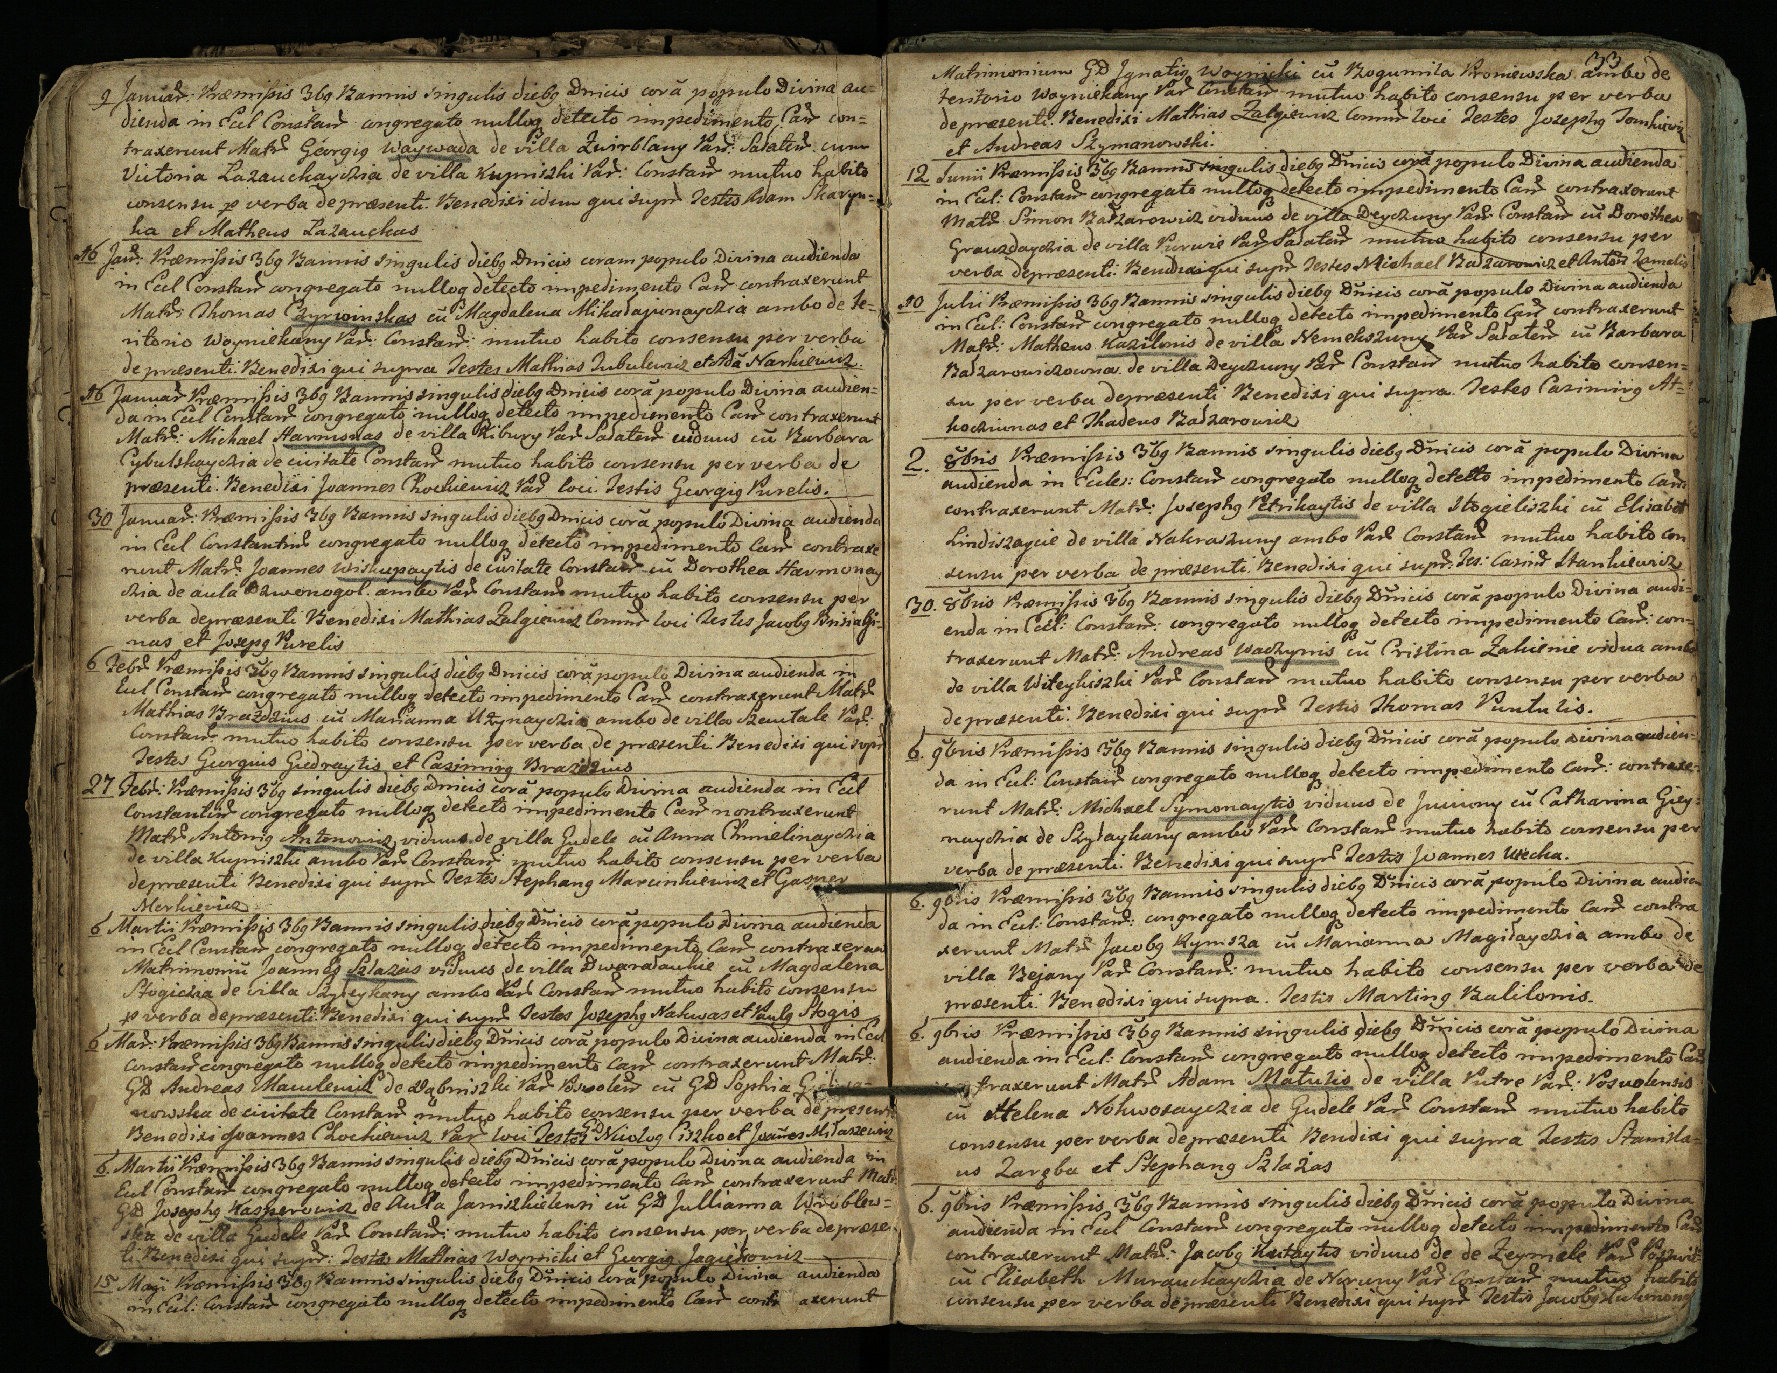 9 Januar: Præmissis 3bg Bannis singulis diebg Dnicis corā populo Divina au=
dienda in Eccl Constan congregato nulloq detecto impedimento Can con=
traxerunt Matr Georgig Waywada de villa Zwirblany Par: Sadaten cum
Victoria Lazauckaychia de villa Kupniszki Par: Constan mutuo habito
consensu p verba depræsenti. Benedixi idem qui supr Testes Adam Skaryn=
ka et Matheus Lazauckas
16 Jan: Præmissis 3bg Bannis singulis diebg Dnicis coram populo Divina audienda
in Eccl Constan congregato nulloq detecto impedimento Can contraxerunt
Matr: Thomas Czyrwinskas cū Magdalena Mikadajunaychia ambo de te=
ritorio Woyniekany Par: Constan: mutuo habito consensu per verba
depræsenti. Benedixi qui supra Testes Mathias Jubulewicz et Narkiewicz
16 Januar Præmissis 3bg Bannis singulis diebg Dnicis corā populo Divina audien=
da in Eccl Constan congregato nulloq detecto impedimento Can contraxerunt
Matr: Michael Harmonas de villa Kibury Par Sadaten viduus cū Barbara
Cybulskaychia de civitate Constan mutuo habito consensu per verba de
præsenti. Benedixi Joannes Chockiewicz Par loci Testis Georgig Purelis.
30 Januar: Præmissis 3bg Bannis singulis diebg Dnicis corā populo Divina audienda
in Eccl Constantin congregato nulloq detecto impedimento Can contraxe
runt Matr Joannes Wiskupaytis de civitate Constan cū Dorothea Harmonay
chia de aula Dzwonogol. ambo Par Constan mutuo habito consensu per
verba depræsenti Benedixi Mathias Zalgiewicz Comm loci Testes Jacobg
nas et Josepg Purelis
6 Febr Præmissis 3bg Bannis singulis diebg Dnicis corā populo Divina audienda in
Eccl Constan congregato nulloq detecto impedimento Can contraxerunt Matr
Mathias Brazdzius cū Marianna Użynaychia ambo de villa Szeutale Par:
Constan mutuo habito consensu per verba de præsenti. Benedixi qui supr
Testes Gurgius Giedraytis et Casimirg Brazdzius
27 Febr: Præmissis 3bg singulis diebg Dnicis corā populo Divina audienda in Eccl
Constantin congregato nulloq detecto impedimento Can nontraxerunt
Matr Antonig Antonowicz viduus de villa Gudele cū Anna Chmielinaychia
de villa Kupniszki ambo Par Constan mutuo habito consensu per verba
depræsenti Benedixi qui supr Testes Stephang Marcinkiewicz et Gasper
Merkiewicz
6 Martii Præmissis 3bg Bannis singulis diebg Dnicis corā populo Divina audienda
in Eccl Constan congregato nulloq detecto impedimento Can contraxerun
Matrimoniū Joannes Szlazas viduus de villa Dwaradaukie cū Magdalena
Stogichia de villa Szyleykany ambo Par Constan mutuo habito consensu
p verba depræsenti Benedixi qui supr Testes Josephg Nakwas et Paulg Stogis
6 Mar: Præmissis 3bg Bannis singulis diebg Dnicis corā populo Divina audienda in Eccl
Constan congregato nulloq detecto impedimento Can contraxerunt Matr:
GD Andreas Maculewicz de Dąbniszki Par Poswolen cū GD Sophia
nowska de civitate Constan mutuo habito consensu per verba de præsenti
Benedixi Joannes Chockiewicz Par loci Testes GD Nicolog Ciszko et Joannes Milaszewicz
6. Martii Præmissis 3bg Bannis singulis diebg Dnicis corā populo Divina audienda in
Eccl Constan congregato nulloq detecto impedimento Can contraxerunt Matr
GD Josephg Kasperowicz de Aula Janiszkielensi cū GD Jullianna Wróblew=
ska de villa Gudele Par Constan: mutuo habito consensu per verba depræse
ti Benedixi qui supr: Testes Mathias Woynicki et Georgig Jagiełłowicz
15 Maji Præmissis 3bg Bannis singulis diebg Dnicis corā populo Divina audienda
in Eccl: Constan congregato nulloq detecto impedimento Can contr axerunt
33
Matrimonium GD Ignatig Woynicki cū Bogumiła Broniewska ambo de
teritorio Woyniekany Par Constan mutuo habito consensu per verba
depræsenti. Benedixi Mathias Zalgiewicz Comm loci Testes Josephg Jankiewicz
et Andreas Szymanowski.
12 Junii Præmissis 3bg Bannis singulis diebg Dnicis corā populo Divina audienda
in Eccl: Constan congregato nulloq detecto impedimento Can contraxerunt
Matr: Simon Badzarowicz viduus de villa Deyczuny Par Constan cū Dorothea
Grauzdaychia de villa Purwie Par Sadaten mutuo habito consensu per
verba depræsenti. Benedixi qui supr Testes Michael Badzarowicz et Anton
10 Julii Præmissis 3bg Bannis singulis diebg Dnicis corā populo Divina audienda
in Eccl: Constan congregato nulloq detecto impedimento Can contraxerunt
Matr: Matheus Kazilonis de villa Nemekszuny Par Sadaten cū Barbara
Badzarowiczowna de villa Deyczuny Par Constan mutuo habito consen=
su per verba depræsenti Benedixi qui supra. Testes Casimirg At=
kocziunas et Thadeus Badzarowicz
2. 8bris Præmissis 3bg Bannis singulis diebg Dnicis corā populo Divina
audienda in Eccles: Constan congregato nulloq detecto impedimento Can
contraxerunt Matr: Josephg Petrikaytis de villa Stogieliszki cū Elisabet
Lindiszaycie de villa Nakraszuny ambo Par Constan mutuo habito con
sensu per verba de præsenti. Benedixi qui supr: Tes: Casimr Stankiewicz
30. 8bris Præmissis 3bg Bannis singulis diebg Dnicis corā populo Divina audi=
enda in Eccl: Constan: congregato nulloq detecto impedimento Can: con=
traxerunt Matr: Andreas Waczynis cū Cristina Zakienie vidua ambo
de villa Witeykiszki Par Constan mutuo habito consensu per verba
depræsenti. Benedixi qui supr Testis Thomas Puntuzis.
6. 9bris Præmissis 3bg Bannis singulis diebg Dnicis corā populo Divina audien=
da in Eccl: Constan congregato nulloq detecto impedimento Can: contraxe=
runt Matr: Michael Symonaytis viduus de Juciuny cū Catharina Giey=
naychia de Szylaykany ambo Par Constan mutuo habito consensu per
verba de præsenti. Benedixi qui supr Testes Joannes Uzcka.
6. 9bris Præmissis 3bg Bannis singulis diebg Dnicis corā populo Divina audien
da in Eccl: Constan: congregato nulloq detecto impedimento Can contra
xerunt Matr Jacobg Rymsza cū Marianna Magidaychia ambo de
villa Bejany Par Constan: mutuo habito consensu per verba de
præsenti Benedixi qui supra. Testis Marting Balilonis.
6. 9bris Præmissis 3bg Bannis singulis diebg Dnicis corā populo Divina
audienda in Eccl: Constan congregato nulloq detecto impedimento Can
traxerunt Matr Adam Matuzis de villa Putre Par: Posvolensis
cū Helena Nokwosaychia de Gudele Par Constan mutuo habito
consensu per verba depræsenti Bendixi qui supra Testes Stanisla=
us Zaręba et Stephang Szlazas
6. 9bris Præmissis 3bg Bannis singulis diebg Dnicis corā populo Divina
audienda in Eccl Constan congregato nulloq detecto impedimento Can
contraxerunt Matr: Jacobg Kutaytis viduus de de Zeymiele Par
cū Elisabeth Murauckaychia de Noruny Par Constan mutuo habito
consensu per verba depræsenti Benedixi qui supr Testes Jacobg